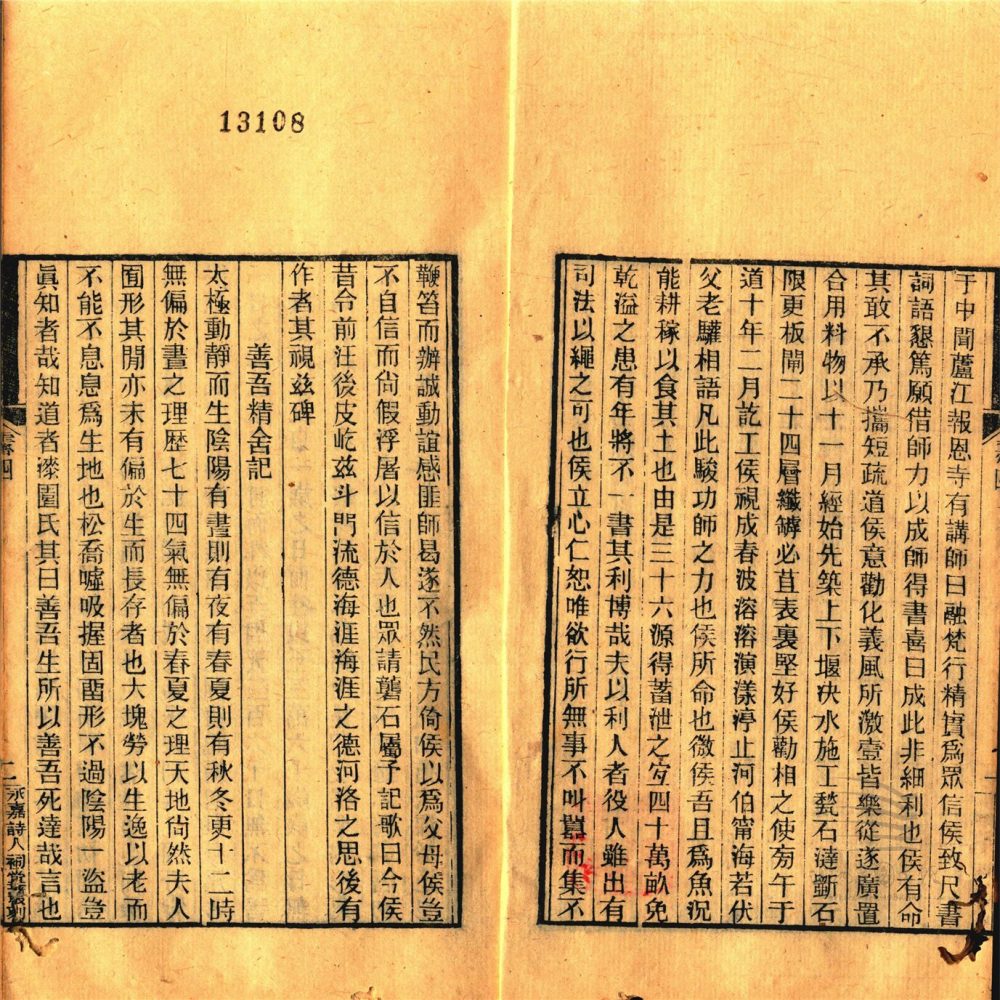 于中聞蘆江報恩寺有講師曰融梵行精實爲眾信侯致尺書
詞語懇篤願借師力以成師得書喜曰成此非細利也侯有命
其敢不承乃攜短疏道侯意勸化義風所激壹皆樂從遂廣置
合用料物以十一月經始先築上下堰決水施工甃石澾斵石
限更板閘二十四層纖罅必苴表裏堅好侯勸相之使旁午于
道十年二月訖工侯視成春波溶溶演漾渟止河伯甯海若伏
父老驩相語凡此駿功師之力也侯所命也微侯吾且爲魚況
能耕稼以食其土也由是三十六源得蓄泄之宜四十萬畝免
乾溢之患有年將不一書其利博哉夫以利人者役人雖出有
司法以繩之可也侯立心仁恕唯欲行所無事不叫囂而集不
鞭笞而辦誠動誼感匪師曷遂不然民方倚侯以爲父母侯豈
不自信而尙假浮屠以信於人也眾請礱石屬予記歌曰今侯
昔令前汪後皮屹茲斗門流德海涯海涯之德河洛之思後有
作者其視茲碑
善吾精舍記
太極動靜而生陰陽有晝則有夜有春夏則有秋冬更十二時
無偏於晝之理歴七十四氣無偏於春夏之理天地尙然夫人
囿形其閒亦未有偏於生而長存者也大塊勞以生逸以老而
不能不息息爲生地也松喬噓吸握固畱形不過陰陽一盜豈
眞知者哉知道者漆園氏其曰善吾生所以善吾死達哉言也
卷四
永嘉詩人祠堂叢刻
13108